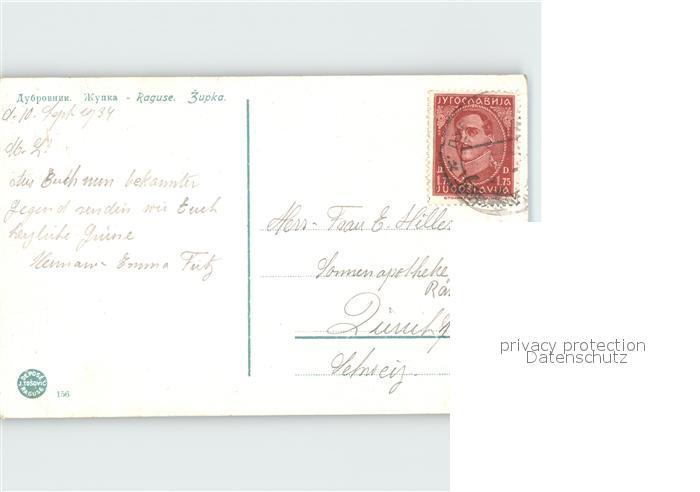 Дубровник. Жупка - Raguse. Župka.
d. 10. Sept. 1934
M. L.
Aus Euch nun bekannter
Gegend senden wir Euch
herzliche Grüsse
Hermann - Emma Futz
ЈУГОСЛАВИЈА
Д. D.
1.75 1.75
JUGOSLAVIJA
Herr - Frau E. Hille
Sonnenapotheke
Rä
Zürich
Schweiz.
DEPOSÉ
J. TOŠOVIĆ
RAGUSE
156
privacy protection
Datenschutz